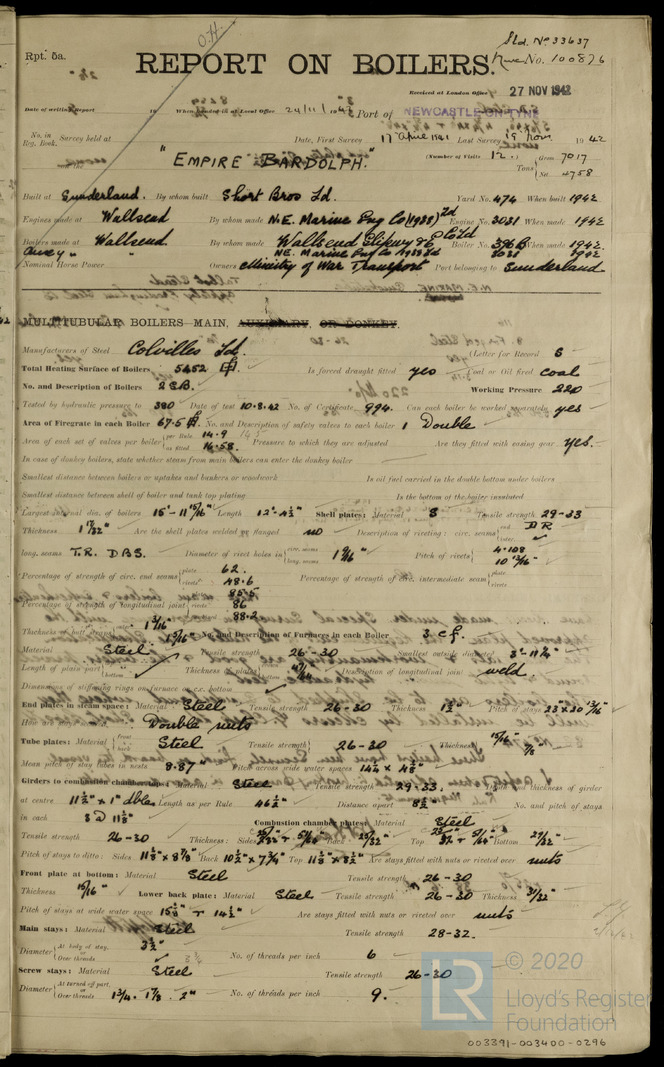 Sld. No 33637
Rpt. 5a.
REPORT ON BOILERS.
No. 100876
Received at London Office 27 NOV 1942
Date of writing Report 19 When handed in at Local Office 24/11/1942 Port of NEWCASTLE-ON-TYNE
No. in Reg. Book. Survey held at Date, First Survey 17 April 1941 Last Survey 19 Nov 1942
(Number of Visits 12.) Gross 7017
Tons Net 4758
on the "EMPIRE BARDOLPH."
Built at Sunderland. By whom built Short Bros Ld. Yard No. 474 When built 1942
Engines made at Wallsend By whom made N.E. Marine Eng Co (1938) Ld Engine No. 3031 When made 1942
Boilers made at Wallsend By whom made Wallsend Slipway & E Co Ld Boiler No. 396B When made 1942.
N.E. Marine Eng Co 1938 Ld 3031 1942
Nominal Horse Power Owners Ministry of War Transport Port belonging to Sunderland
MULTITUBULAR BOILERS MAIN, AUXILIARY OR DONKEY.
Manufacturers of Steel Colvilles Ld. (Letter for Record S
Total Heating Surface of Boilers 5452 Is forced draught fitted yes Coal or Oil fired coal
No. and Description of Boilers 2 S.B. Working Pressure 220
Tested by hydraulic pressure to 380 Date of test 10.8.42 No. of Certificate 994. Can each boiler be worked separately yes
Area of Firegrate in each Boiler 67.5 No. and Description of safety valves to each boiler 1 Double
Area of each set of valves per boiler per Rule 14.9 as fitted 16.58. Pressure to which they are adjusted Are they fitted with easing gear yes.
In case of donkey boilers, state whether steam from main boilers can enter the donkey boiler
Smallest distance between boilers or uptakes and bunkers or woodwork Is oil fuel carried in the double bottom under boilers
Smallest distance between shell of boiler and tank top plating Is the bottom of the boiler insulated
Largest internal dia. of boilers 15'-11 15/16" Length 12'-4½" Shell plates: Material S Tensile strength 29-33
Thickness 1 17/32" Are the shell plates welded or flanged no Description of riveting: circ. seams end D R
long. seams T.R. D.B.S. Diameter of rivet holes in circ. seams long. seams 1 9/16" Pitch of rivets 4.108
10 15/16"
Percentage of strength of circ. end seams plate 62. rivets 48.6 Percentage of strength of circ. intermediate seam plate rivets
Percentage of strength of longitudinal joint plate 85.5 rivets 86 88.2
Thickness of butt straps 1 3/16" 1 5/16" No. and Description of Furnaces in each Boiler 3 c.f.
Material Steel Tensile strength 26-30 Smallest outside diameter 3'-11¼"
Length of plain part top bottom Thickness of plates 41/64" Description of longitudinal joint weld
Dimensions of stiffening rings on furnace or c.c. bottom
End plates in steam space: Material Steel Tensile strength 26-30 Thickness 1 3/16" Pitch of stays 23 x 20 13/16"
Double nuts
Tube plates: Material front back Steel Tensile strength 26-30 Thickness 15/16" 7/8"
Mean pitch of stay tubes in nests 8.87" Pitch across wide water spaces 14¼ x 4⅞"
Girders to combustion chamber tops: Material Steel Tensile strength 29-33. Depth and thickness of girder
at centre 11½" x 1" dbles Length as per Rule 46½" Distance apart 8½" No. and pitch of stays
in each 3 @ 11½" Combustion chamber plates: Material Steel
Tensile strength 26-30 Thickness: Sides Back 25/32" Top Bottom 27/32"
Pitch of stays to ditto: Sides 11⅛" x 8⅞" Back 10½" x 7¾" Top 11½" x 8½" Are stays fitted with nuts or riveted over nuts
Front plate at bottom: Material Steel Tensile strength 26-30
Thickness 15/16" Lower back plate: Material Steel Tensile strength 26-30 Thickness 31/32"
Pitch of stays at wide water space 15⅛" x 14½" Are stays fitted with nuts or riveted over nuts
Main stays: Material Steel Tensile strength 28-32.
Diameter At body of stay, or Over threads 3½" No. of threads per inch 6
Screw stays: Material Steel Tensile strength 26-30
Diameter At turned off part, or Over threads 1¾. 1⅞. 2" No. of threads per inch 9.
© 2020
LR
Lloyd's Register
Foundation
003391-003400-0296